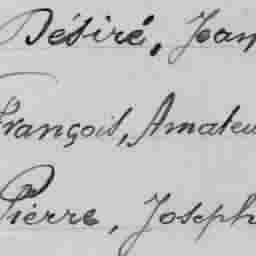 Désiré, Jean
François, Amateu
Pierre, Joseph